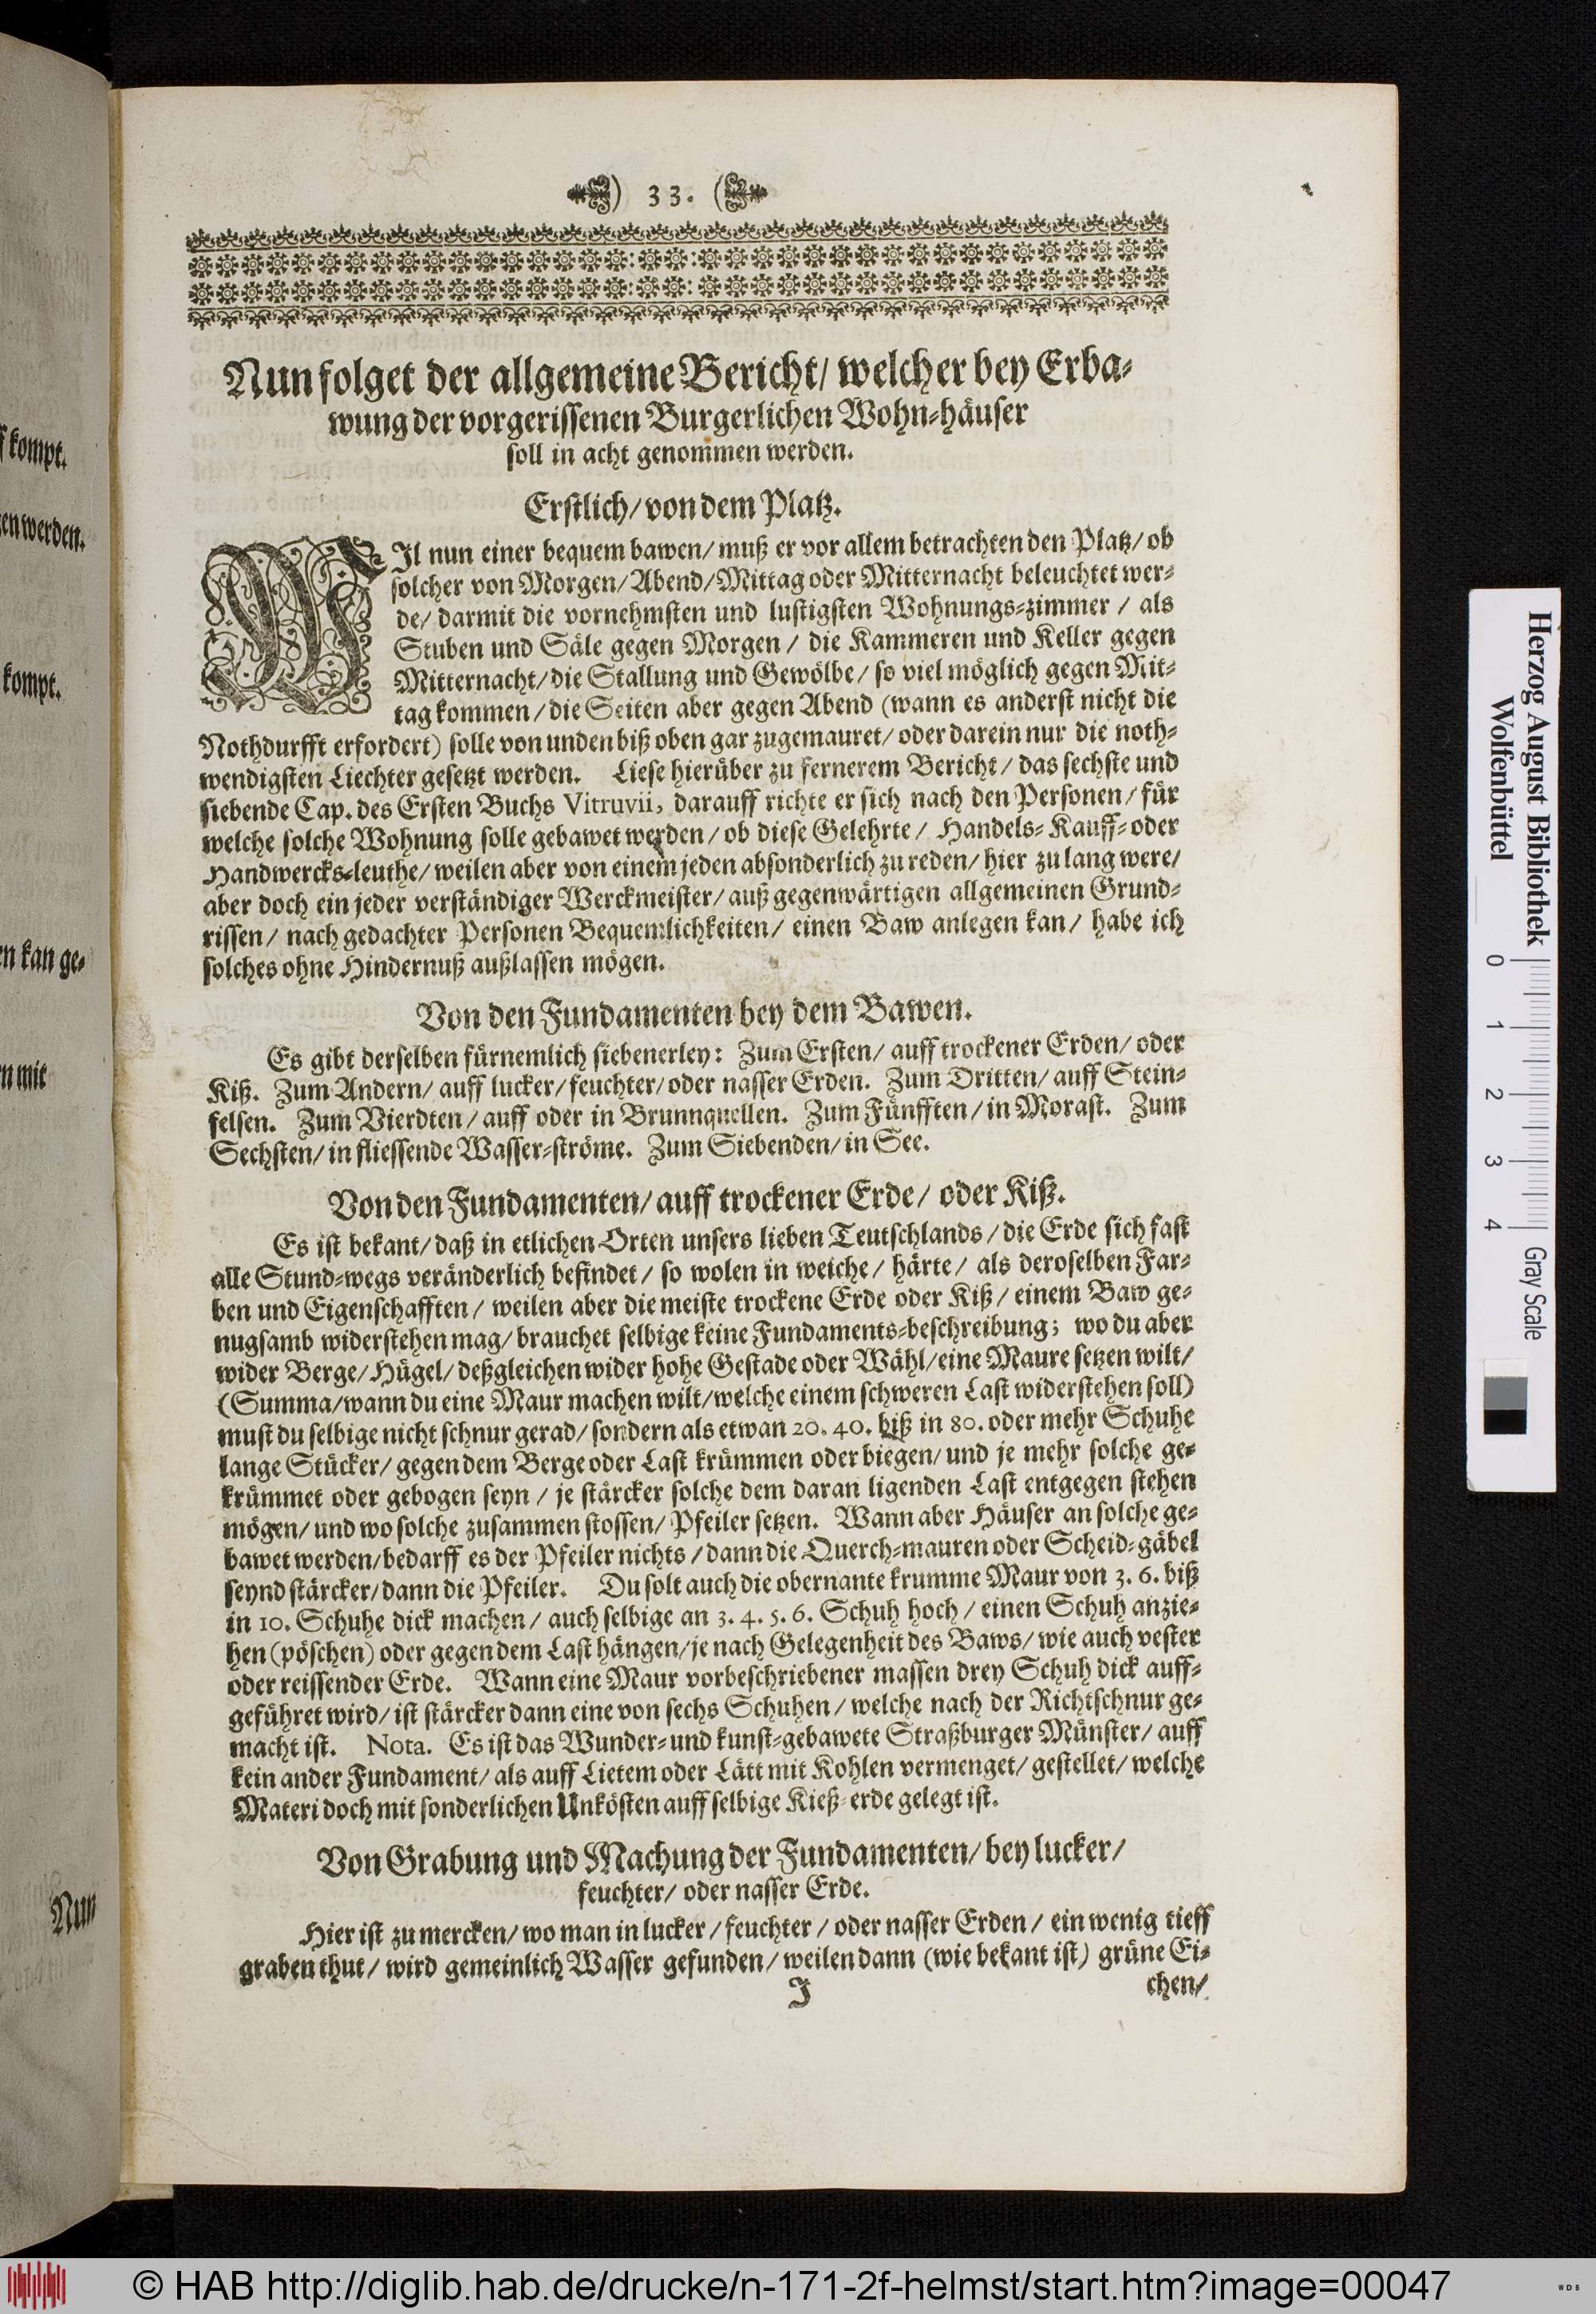 ) 33. (
Nun folget der allgemeine Bericht/ welcher bey Erba-
wung der vorgerissenen Burgerlichen Wohn-häuser
soll in acht genommen werden.
Erstlich/ von dem Platz.
WIl nun einer bequem bawen/ muß er vor allem betrachten den Platz/ ob
solcher von Morgen/ Abend/ Mittag oder Mitternacht beleuchtet wer-
de/ darmit die vornehmsten und lustigsten Wohnungs-zimmer / als
Stuben und Säle gegen Morgen / die Kammeren und Keller gegen
Mitternacht/ die Stallung und Gewölbe/ so viel möglich gegen Mit-
tag kommen / die Seiten aber gegen Abend (wann es anderst nicht die
Nothdurfft erfordert) solle von unden biß oben gar zugemauret/ oder darein nur die noth-
wendigsten Liechter gesetzt werden. Liese hierüber zu fernerem Bericht/ das sechste und
siebende Cap. des Ersten Buchs Vitruvii, darauff richte er sich nach den Personen/ für
welche solche Wohnung solle gebawet werden/ ob diese Gelehrte/ Handels- Kauff- oder
Handwercks-leuthe/ weilen aber von einem jeden absonderlich zu reden/ hier zu lang were/
aber doch ein jeder verständiger Werckmeister/ auß gegenwärtigen allgemeinen Grund-
rissen/ nach gedachter Personen Bequemlichkeiten/ einen Baw anlegen kan/ habe ich
solches ohne Hindernuß außlassen mögen.
Von den Fundamenten bey dem Bawen.
Es gibt derselben fürnemlich siebenerley: Zum Ersten/ auff trockener Erden/ oder
Kiß. Zum Andern/ auff lucker/ feuchter/ oder nasser Erden. Zum Dritten/ auff Stein-
felsen. Zum Vierdten/ auff oder in Brunnquellen. Zum Fünfften/ in Morast. Zum
Sechsten/ in fliessende Wasser-ströme. Zum Siebenden/ in See.
Von den Fundamenten/ auff trockener Erde/ oder Kiß.
Es ist bekant/ daß in etlichen Orten unsers lieben Teutschlands / die Erde sich fast
alle Stund-wegs veränderlich befindet/ so wolen in weiche/ härte/ als deroselben Far-
ben und Eigenschafften/ weilen aber die meiste trockene Erde oder Kiß/ einem Baw ge-
nugsamb widerstehen mag/ brauchet selbige keine Fundaments-beschreibung; wo du aber
wider Berge/ Hügel/ deßgleichen wider hohe Gestade oder Wähl/ eine Maure setzen wilt/
(Summa/ wann du eine Maur machen wilt/ welche einem schweren Last widerstehen soll)
must du selbige nicht schnur gerad/ sondern als etwan 20. 40. biß in 80. oder mehr Schuhe
lange Stücker/ gegen dem Berge oder Last krümmen oder biegen/ und je mehr solche ge-
krümmet oder gebogen seyn / je stärcker solche dem daran ligenden Last entgegen stehen
mögen/ und wo solche zusammen stossen/ Pfeiler setzen. Wann aber Häuser an solche ge-
bawet werden/ bedarff es der Pfeiler nichts / dann die Querch-mauren oder Scheid-gäbel
seynd stärcker/ dann die Pfeiler. Du solt auch die obernante krumme Maur von 3. 6. biß
in 10. Schuhe dick machen/ auch selbige an 3. 4. 5. 6. Schuh hoch / einen Schuh anzie-
hen (pöschen) oder gegen dem Last hängen/ je nach Gelegenheit des Baws/ wie auch vester
oder reissender Erde. Wann eine Maur vorbeschriebener massen drey Schuh dick auff-
geführet wird/ ist stärcker dann eine von sechs Schuhen/ welche nach der Richtschnur ge-
macht ist. Nota. Es ist das Wunder- und kunst-gebawete Straßburger Münster/ auff
kein ander Fundament/ als auff Lietem oder Lätt mit Kohlen vermenget/ gestellet/ welche
Materi doch mit sonderlichen Unkösten auff selbige Kieß-erde gelegt ist.
Von Grabung und Machung der Fundamenten/ bey lucker/
feuchter/ oder nasser Erde.
Hier ist zu mercken/ wo man in lucker / feuchter / oder nasser Erden / ein wenig tieff
graben thut/ wird gemeinlich Wasser gefunden/ weilen dann (wie bekant ist) grüne Ei-
J
chen/
kompt.
werden.
kompt.
kan ge-
mit
Nun
Herzog August Bibliothek
Wolfenbüttel
0 1 2 3 4 Gray Scale
© HAB http://diglib.hab.de/drucke/n-171-2f-helmst/start.htm?image=00047
WDB